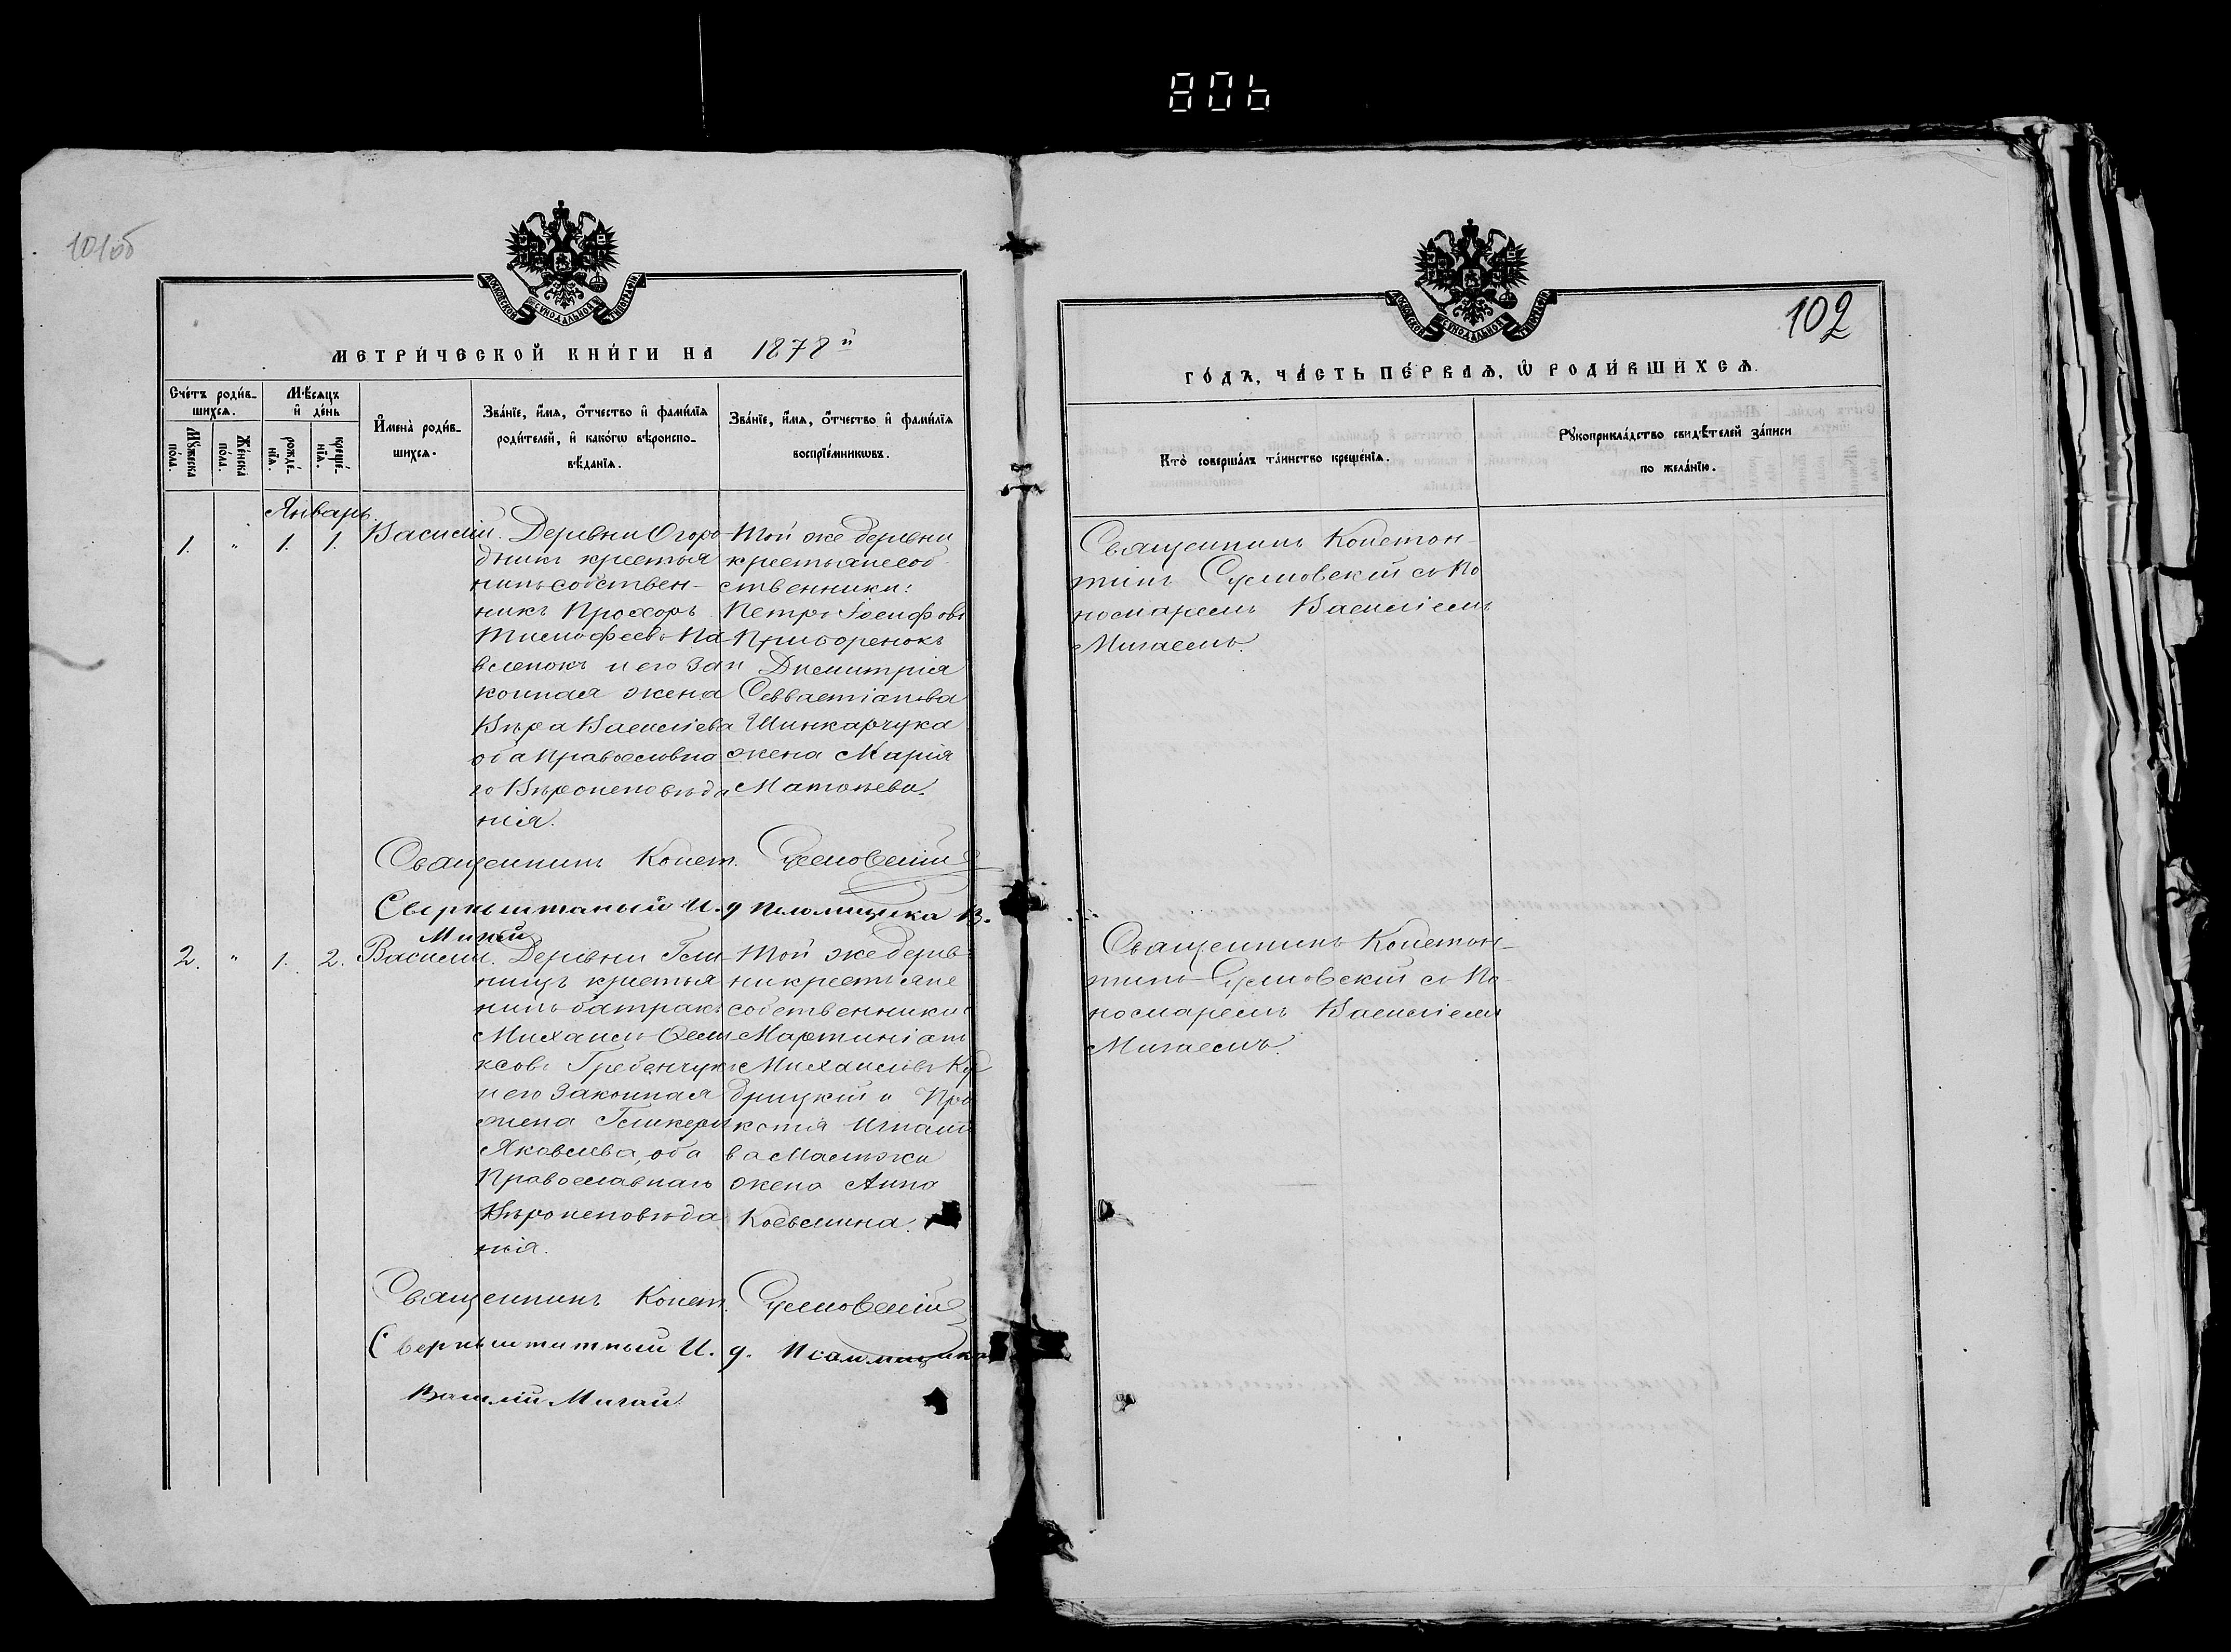 806
101об
МОСКОВСКОЙ СѴНОДАЛЬНОЙ ТИПОГРАФІИ
МЕТРИ́ЧЕСКОЙ КНИ́ГИ НА 1878й
Сче́тъ роди́в-
шихсѧ.
Мѣ́сѧцъ
и҆ де́нь
Мꙋ́жеска
по́ла.
Же́нска
по́ла.
рожде́-
нїѧ.
креще́-
нїѧ.
И҆мена̀ роди́в-
шихсѧ.
Зва́нїе, и҆́мѧ, ѻ҆́тчество и҆ фами́лїѧ
роди́телей, и҆ како́гѡ вѣроиспо-
вѣ́данїѧ.
Зва́нїе, и҆́мѧ, ѻ҆́тчество и҆ фами́лїѧ
воспрїе́мникѡвъ.
Январь.
1. " 1. 1. Василій.
Деревни Огоро
дникъ крестья
нинъ собствен-
никъ Прохоръ
Тимофеевъ Па
вленокъ и его за
конная жена
Вѣра Васильева
оба православна
го Вѣроисповѣда
нія.
Той же деревни
крестьяне соб
ственники:
Петръ Іосифовъ
Пригоренокъ
и Димитрія
Севвастіанова
Шинкарчука
жена Марія
Матѳеева.
Священникъ Конст. Сулковскій
Сверхштатный И. д Псаломщика В.
Мигай
2. " 1. 2. Василій.
Деревни Гли
ницъ крестья
нинъ батракъ
Михаилъ Оле
ксовъ Гребенчукъ
и его законная
жена Гликерія
Яковлева, оба
Православнаго
Вѣроисповѣда
нія.
Той же дерев
ни крестьяне
собственники
Мартиніанъ
Михаиловъ Ку
дрицкій и Про
копія Игнатье
ва
жена Анна
Священникъ Конст. Сулковскій
Сверхштатный И. д. Псаломщика
Василій Мигай.
МОСКОВСКОЙ СѴНОДАЛЬНОЙ ТИПОГРАФІИ
102
ГО́ДЪ, ЧА́СТЬ ПЕ́РВАѦ, Ѡ҆ РОДИ́ВШИХСѦ.
Кто̀ соверша́лъ та́инство креще́нїѧ.
Рꙋкоприкла́дство свидѣ́телей за́писи
по жела́нїю.
Священникъ Констан-
тинъ Сулковскій съ По
номаремъ Василіемъ
Мигаемъ.
Священникъ Констан-
тинъ Сулковскій съ По
номаремъ Василіемъ
Мигаемъ.